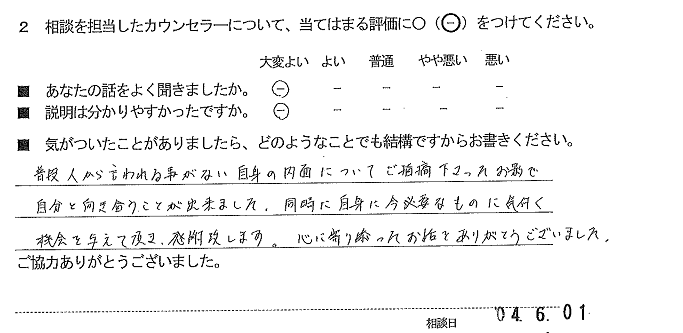 2 相談を担当したカウンセラーについて、当てはまる評価に○(⊖)をつけてください。
大変よい よい 普通 やや悪い 悪い
■ あなたの話をよく聞きましたか。 ⊖ － － － －
■ 説明は分かりやすかったですか。 ⊖ － － － －
■ 気がついたことがありましたら、どのようなことでも結構ですからお書きください。
普段人から言われる事がない自身の内面についてご指摘下さったお影で
自分と向き合うことが出来ました。同時に自身に今必要なものに気付く
機会を与えて頂き、感謝致します。心に寄り添ったお話をありがとうございました。
ご協力ありがとうございました。
相談日 04.6.01